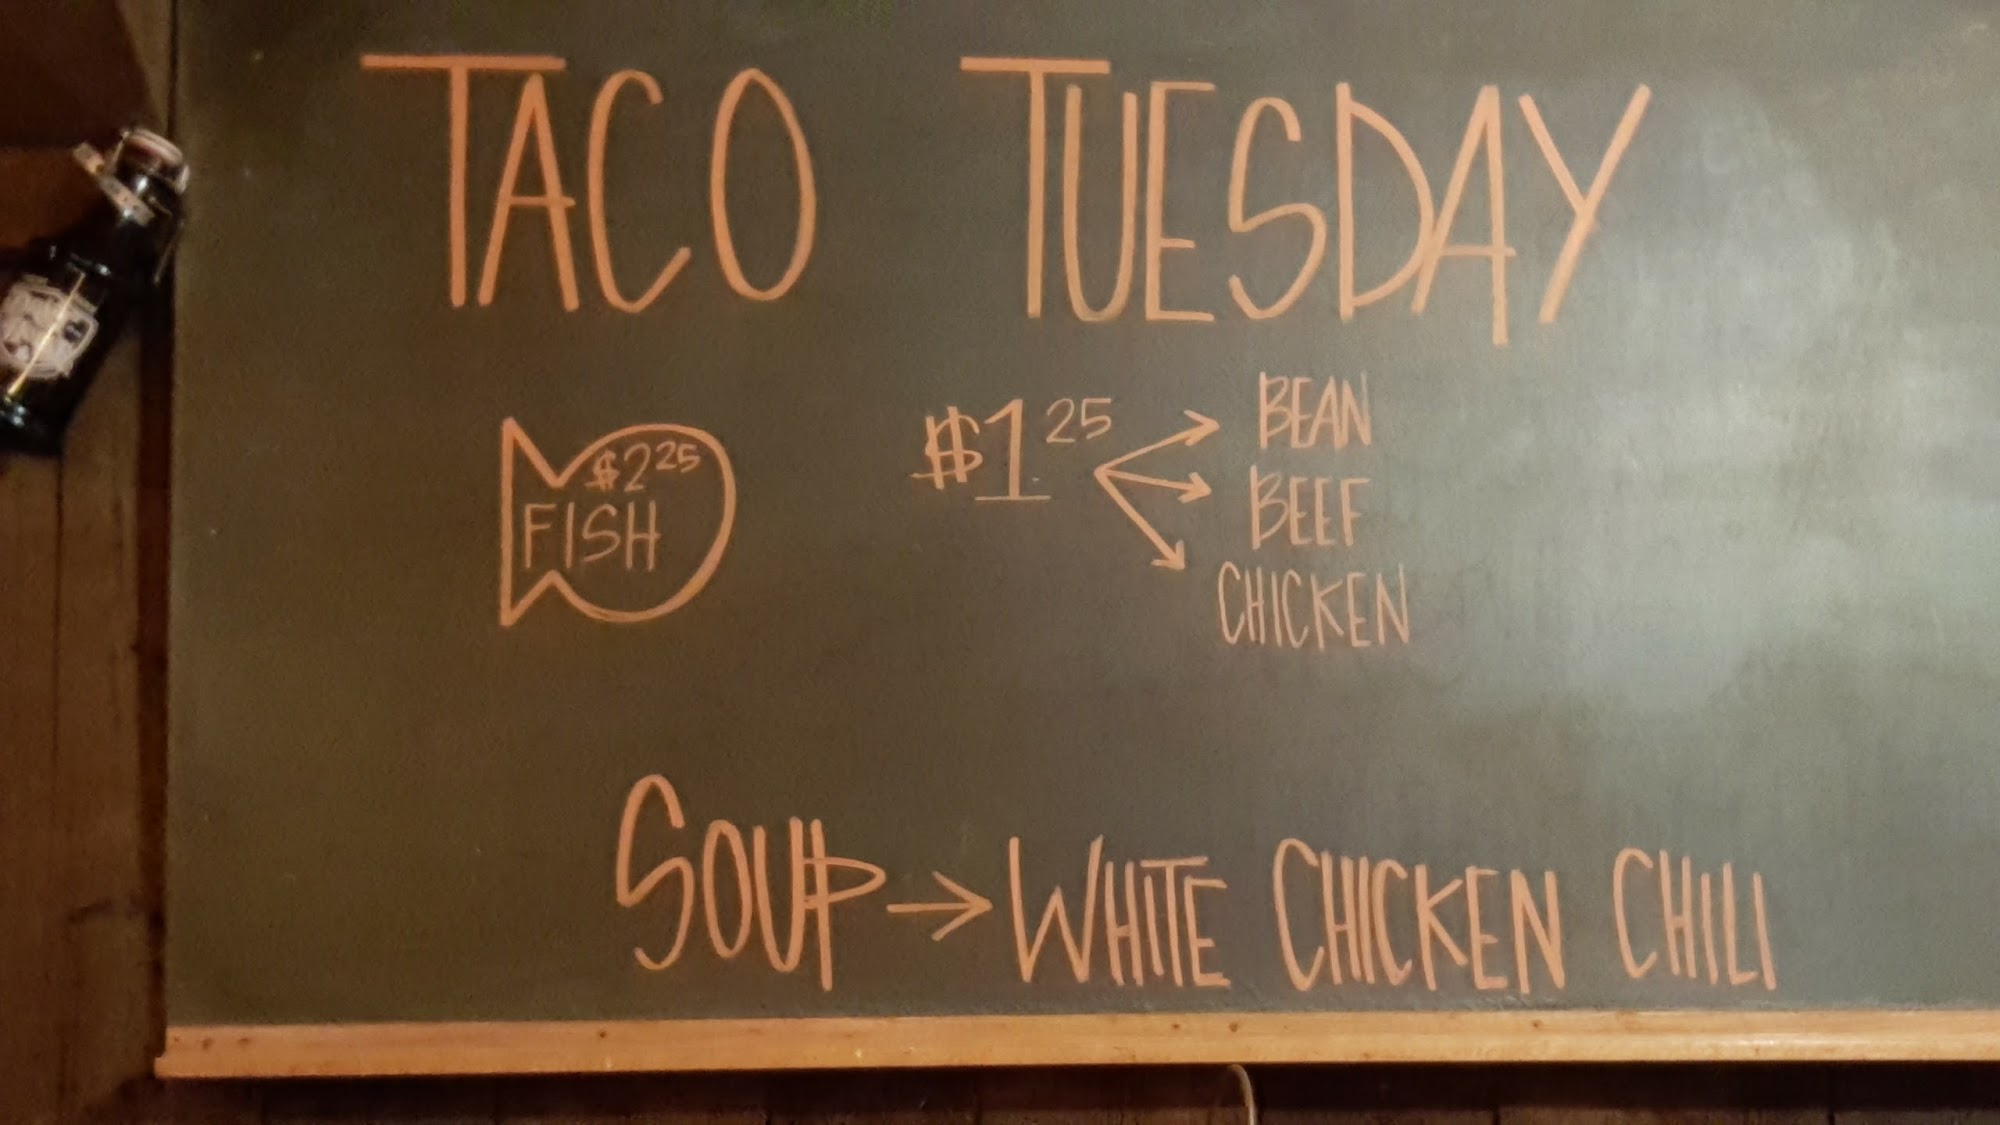 TACO TUESDAY
$2.25
FISH
$1.25
BEAN
BEEF
CHICKEN
SOUP → WHITE CHICKEN CHILI